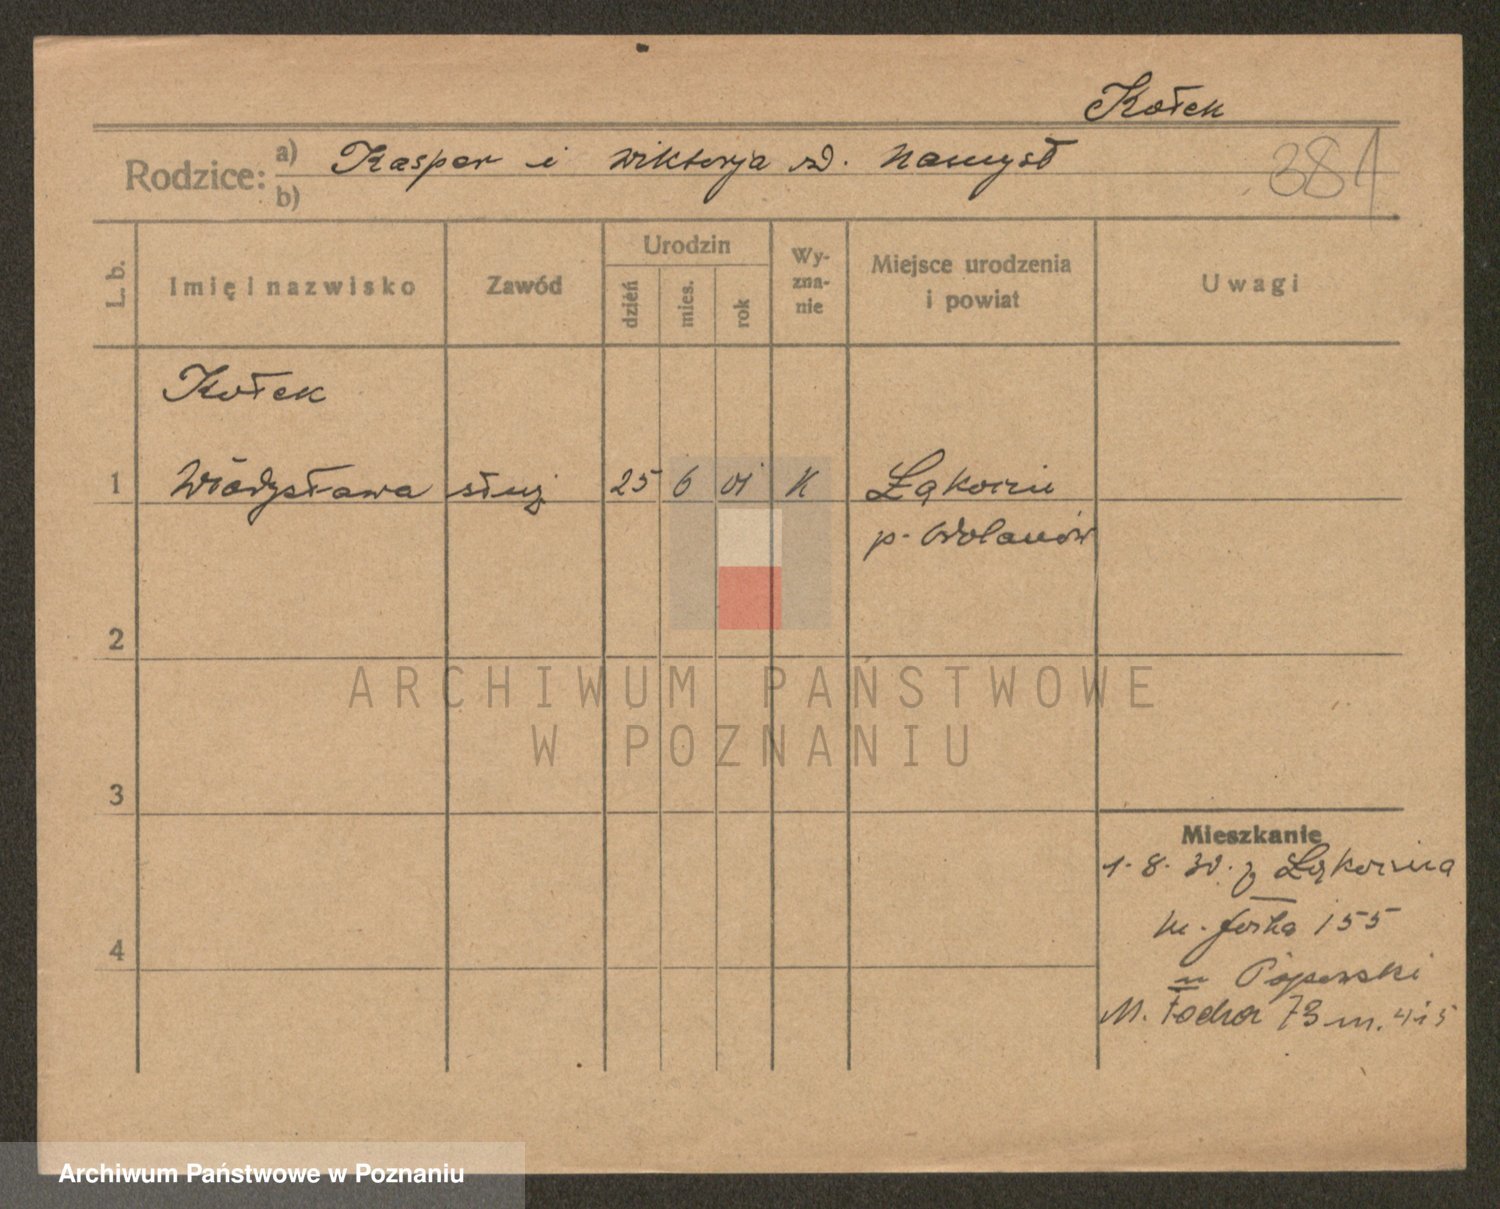 Kołek
Rodzice: a) Kasper i Wiktorja zd. Namysł
b)
381
L. b. Imię i nazwisko Zawód Urodzin dzień mies. rok Wyznanie Miejsce urodzenia i powiat Uwagi
Kołek
1 Władysława służ 25 6 01 K Łąkocin
p. Odolanów
2
ARCHIWUM PAŃSTWOWE
W POZNANIU
3
Mieszkanie
1. 8. 30. z Łąkocina
M. Focha 155
4
M. Focha 73 m. 4 i 5
Archiwum Państwowe w Poznaniu